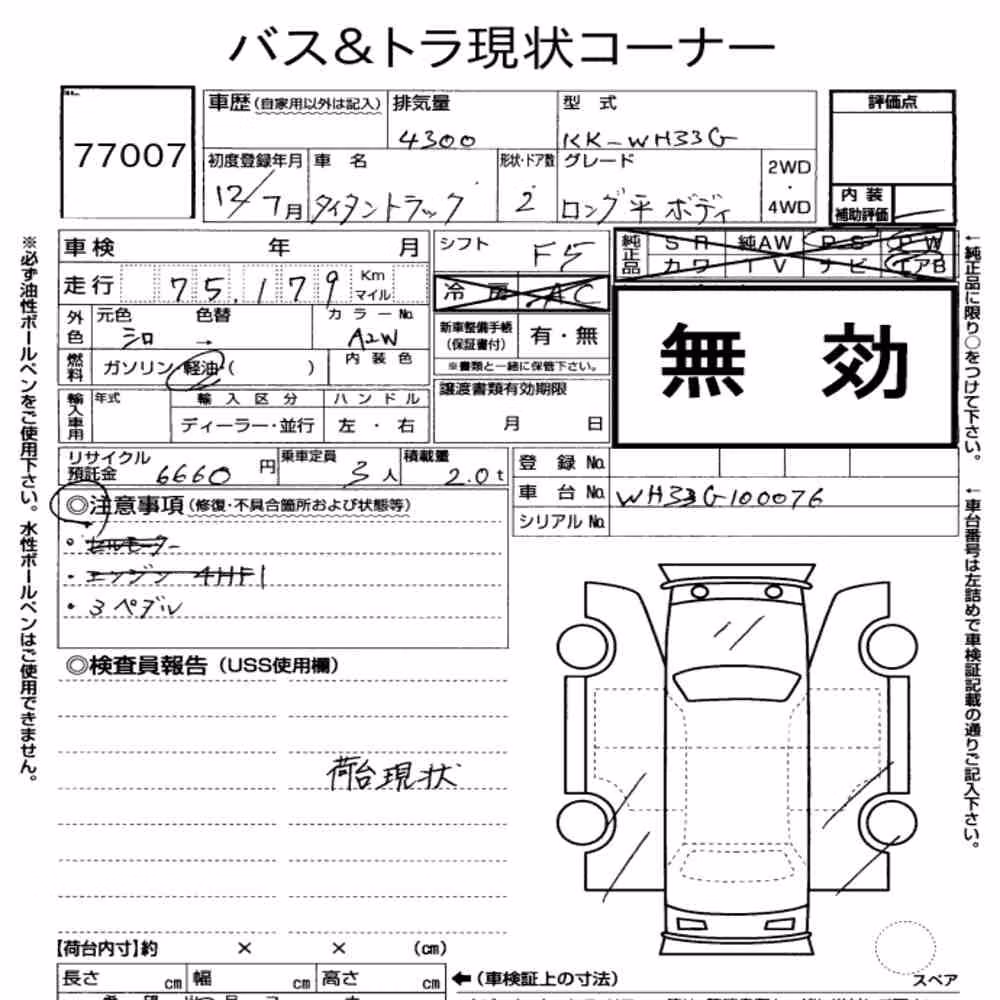 バス&トラ現状コーナー
77007
車歴(自家用以外は記入) 排気量 型 式 評価点
4300 KK-WH33G
初度登録年月 車 名 形状・ドア数 グレード 2WD・4WD
12/7月 タイタントラック 2 ロング平ボディ
内 装
補助評価
車検 年 月 シフト F5
純正品 SR 純AW PS PW
カワ TV ナビ エアB
走行 75.179 Km マイル
冷 房 AC
外色 元色 色替 カラーNo.
シロ → A2W
新車整備手帳(保証書付) 有・無
※書類と一緒に保管下さい。
無 効
燃料 ガソリン・軽油( ) 内 装 色
譲渡書類有効期限
月 日
輸入車用 年式 輸 入 区 分 ハ ン ド ル
ディーラー・並行 左 ・ 右
リサイクル預託金 6660 円 乗車定員 3人 積載量 2.0t
登 録 No.
車 台 No. WH33G100076
シリアル No.
◎注意事項(修復・不具合箇所および状態等)
・セルモーター
・エンジン 4HF1
・3ペダル
◎検査員報告(USS使用欄)
荷台現状
【荷台内寸】約 × × (cm)
長さ cm 幅 cm 高さ cm ←(車検証上の寸法)
スペア
※必ず油性ボールペンをご使用下さい。水性ボールペンはご使用できません。
←純正品に限り○をつけて下さい。
←車台番号は左詰めで車検証記載の通りご記入下さい。